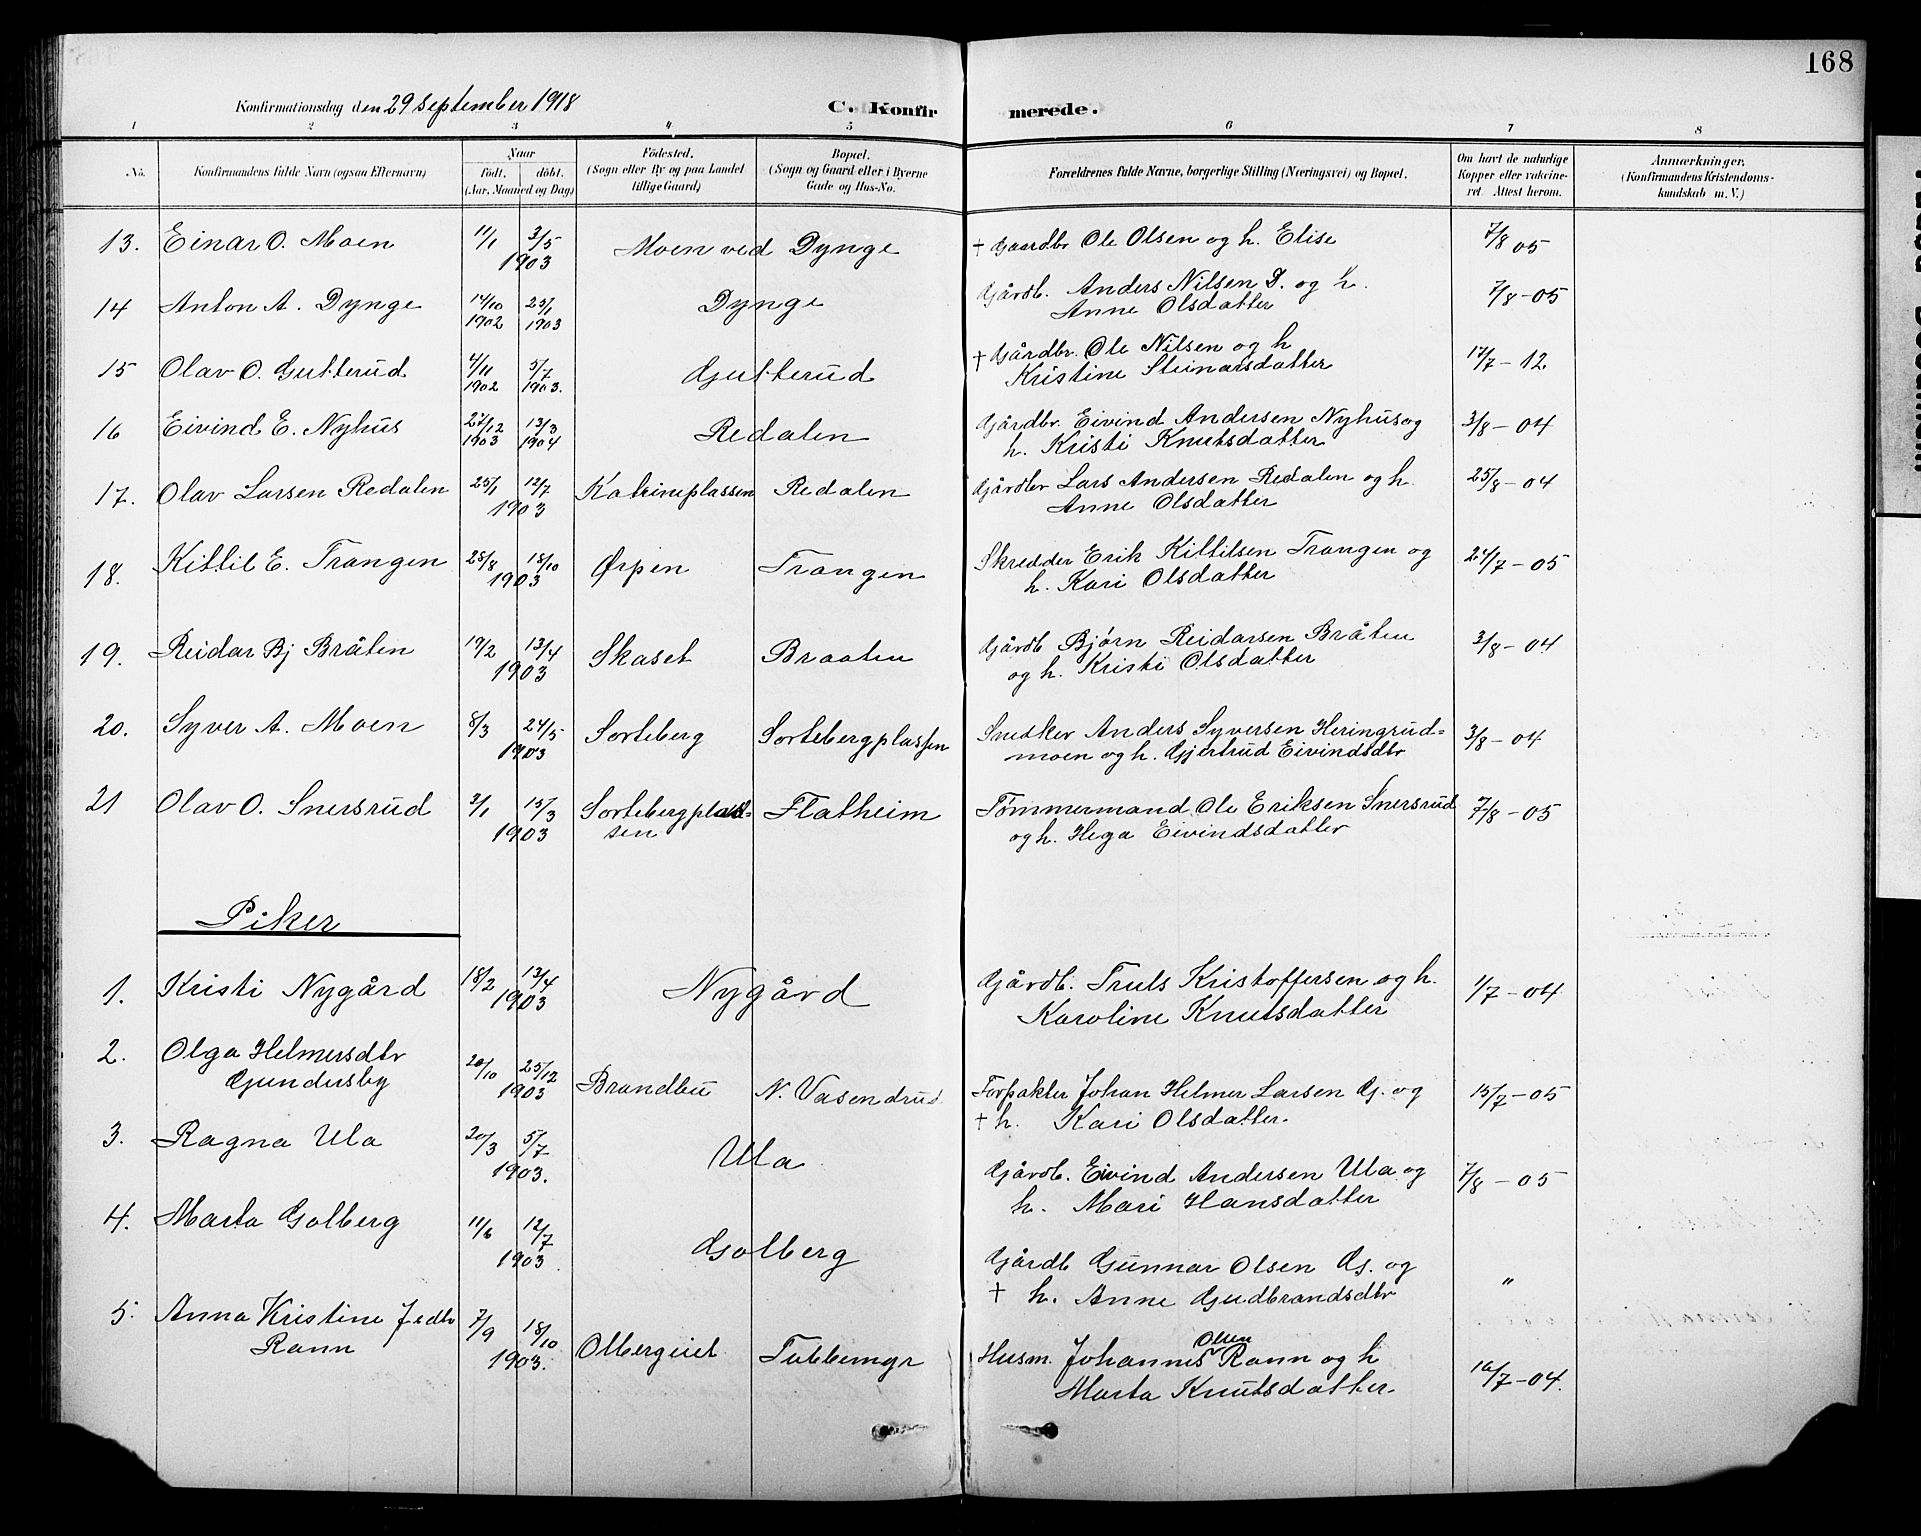 168
Konfirmationsdag den 29 September 1918
C. Konfirmerede.
1 2 3 4 5 6 7 8
No. Konfirmandens fulde Navn (ogsaa Efternavn) Naar födt. döbt. (Aar, Maaned og Dag) Födested. (Sogn eller By og paa Landet tillige Gaard) Bopæl. (Sogn og Gaard eller i Byerne Gade og Hus-No. Forældrenes fulde Navne, borgerlige Stilling (Næringsvei) og Bopæl. Om havt de naturlige Kopper eller vakcineret. Attest herom. Anmærkninger. (Konfirmandens Kristendomskundskab m. V.)
13. Einar O. Moen 11/1 3/5 1903 Moen ved Dynge † Gaardbr Ole Olsen og h. Elise 7/8 05
14 Anton A. Dynge 14/10 1902 25/1 1903 Dynge Gårdb. Anders Nilsen D. og h.
Anne Olsdatter 7/8-05
15 Olav O. Gutterud 4/11 1902 5/7 1903. Gutterud † Gårdbr. Ole Nilsen og h
Kristine Steinarsdatter 17/7-12.
16 Eivind E. Nyhus 27/12 1903 13/3 1904 Redalen Gårdbr. Eivind Andersen Nyhus og
h. Kristi Knutsdatter 3/8-04
17. Olav Larsen Redalen 25/1 12/7 1903 Katrineplassen Redalen Gårdbr Lars Andersen Redalen og h.
Anne Olsdatter 25/8-04
18. Kittil E. Trangen 28/8 18/10 1903 Ørpen Trangen Skredder Erik Kittilsen Trangen og
h. Kari Olsdatter 24/7-05
19. Reidar Bj Bråten 19/2 13/4 1903 Skaset Braaten Gårdb Bjørn Reidarsen Bråten
og h. Kristi Olsdatter 3/8-04
20. Syver A. Moen 8/3 24/5 1903 Sorteberg Sortebergplassen Snedker Anders Syversen Heringrud-
moen og h. Gjertrud Eivindsdtr 3/8-04
21 Olav O. Snersrud 3/1 15/3 1903 Sortebergplas-
sen Flatheim Tømmermand Ole Eriksen Snersrud
og h. Hega Eivindsdatter 7/8-05
Piker
1. Kristi Nygård 18/2 13/4 1903 Nygård Gårdb. Truls Kristoffersen og h.
Karoline Knutsdatter 1/7-04
2. Olga Helmersdtr
Gundersby 20/10 25/12 1903 Brandbu N. Vasendrud Forpakter Johan Helmer Larsen G. og
† h. Kari Olsdatter. 15/7-05
3. Ragna Ula 20/3 5/7 1903. Ula Gårdb. Eivind Andersen Ula og
h. Mari Hansdatter 7/8-05
4. Marta Golberg 11/6 12/7 1903 Golberg Gårdb Gunnar Olsen G. og
† h. Anne Gudbrandsdtr "
5. Anna Kristine Jedtr
Rann 7/9 18/10 1903. Olbergeiet Tubbemyr Husm. Johannes Olsen Rann og h
Marta Knutsdatter. 16/7-04.